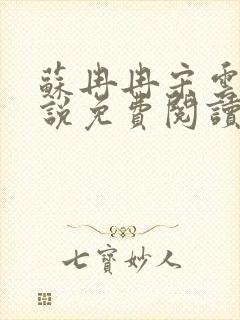 蘇冉冉宋雲
說免費閱讀
七寶妙人